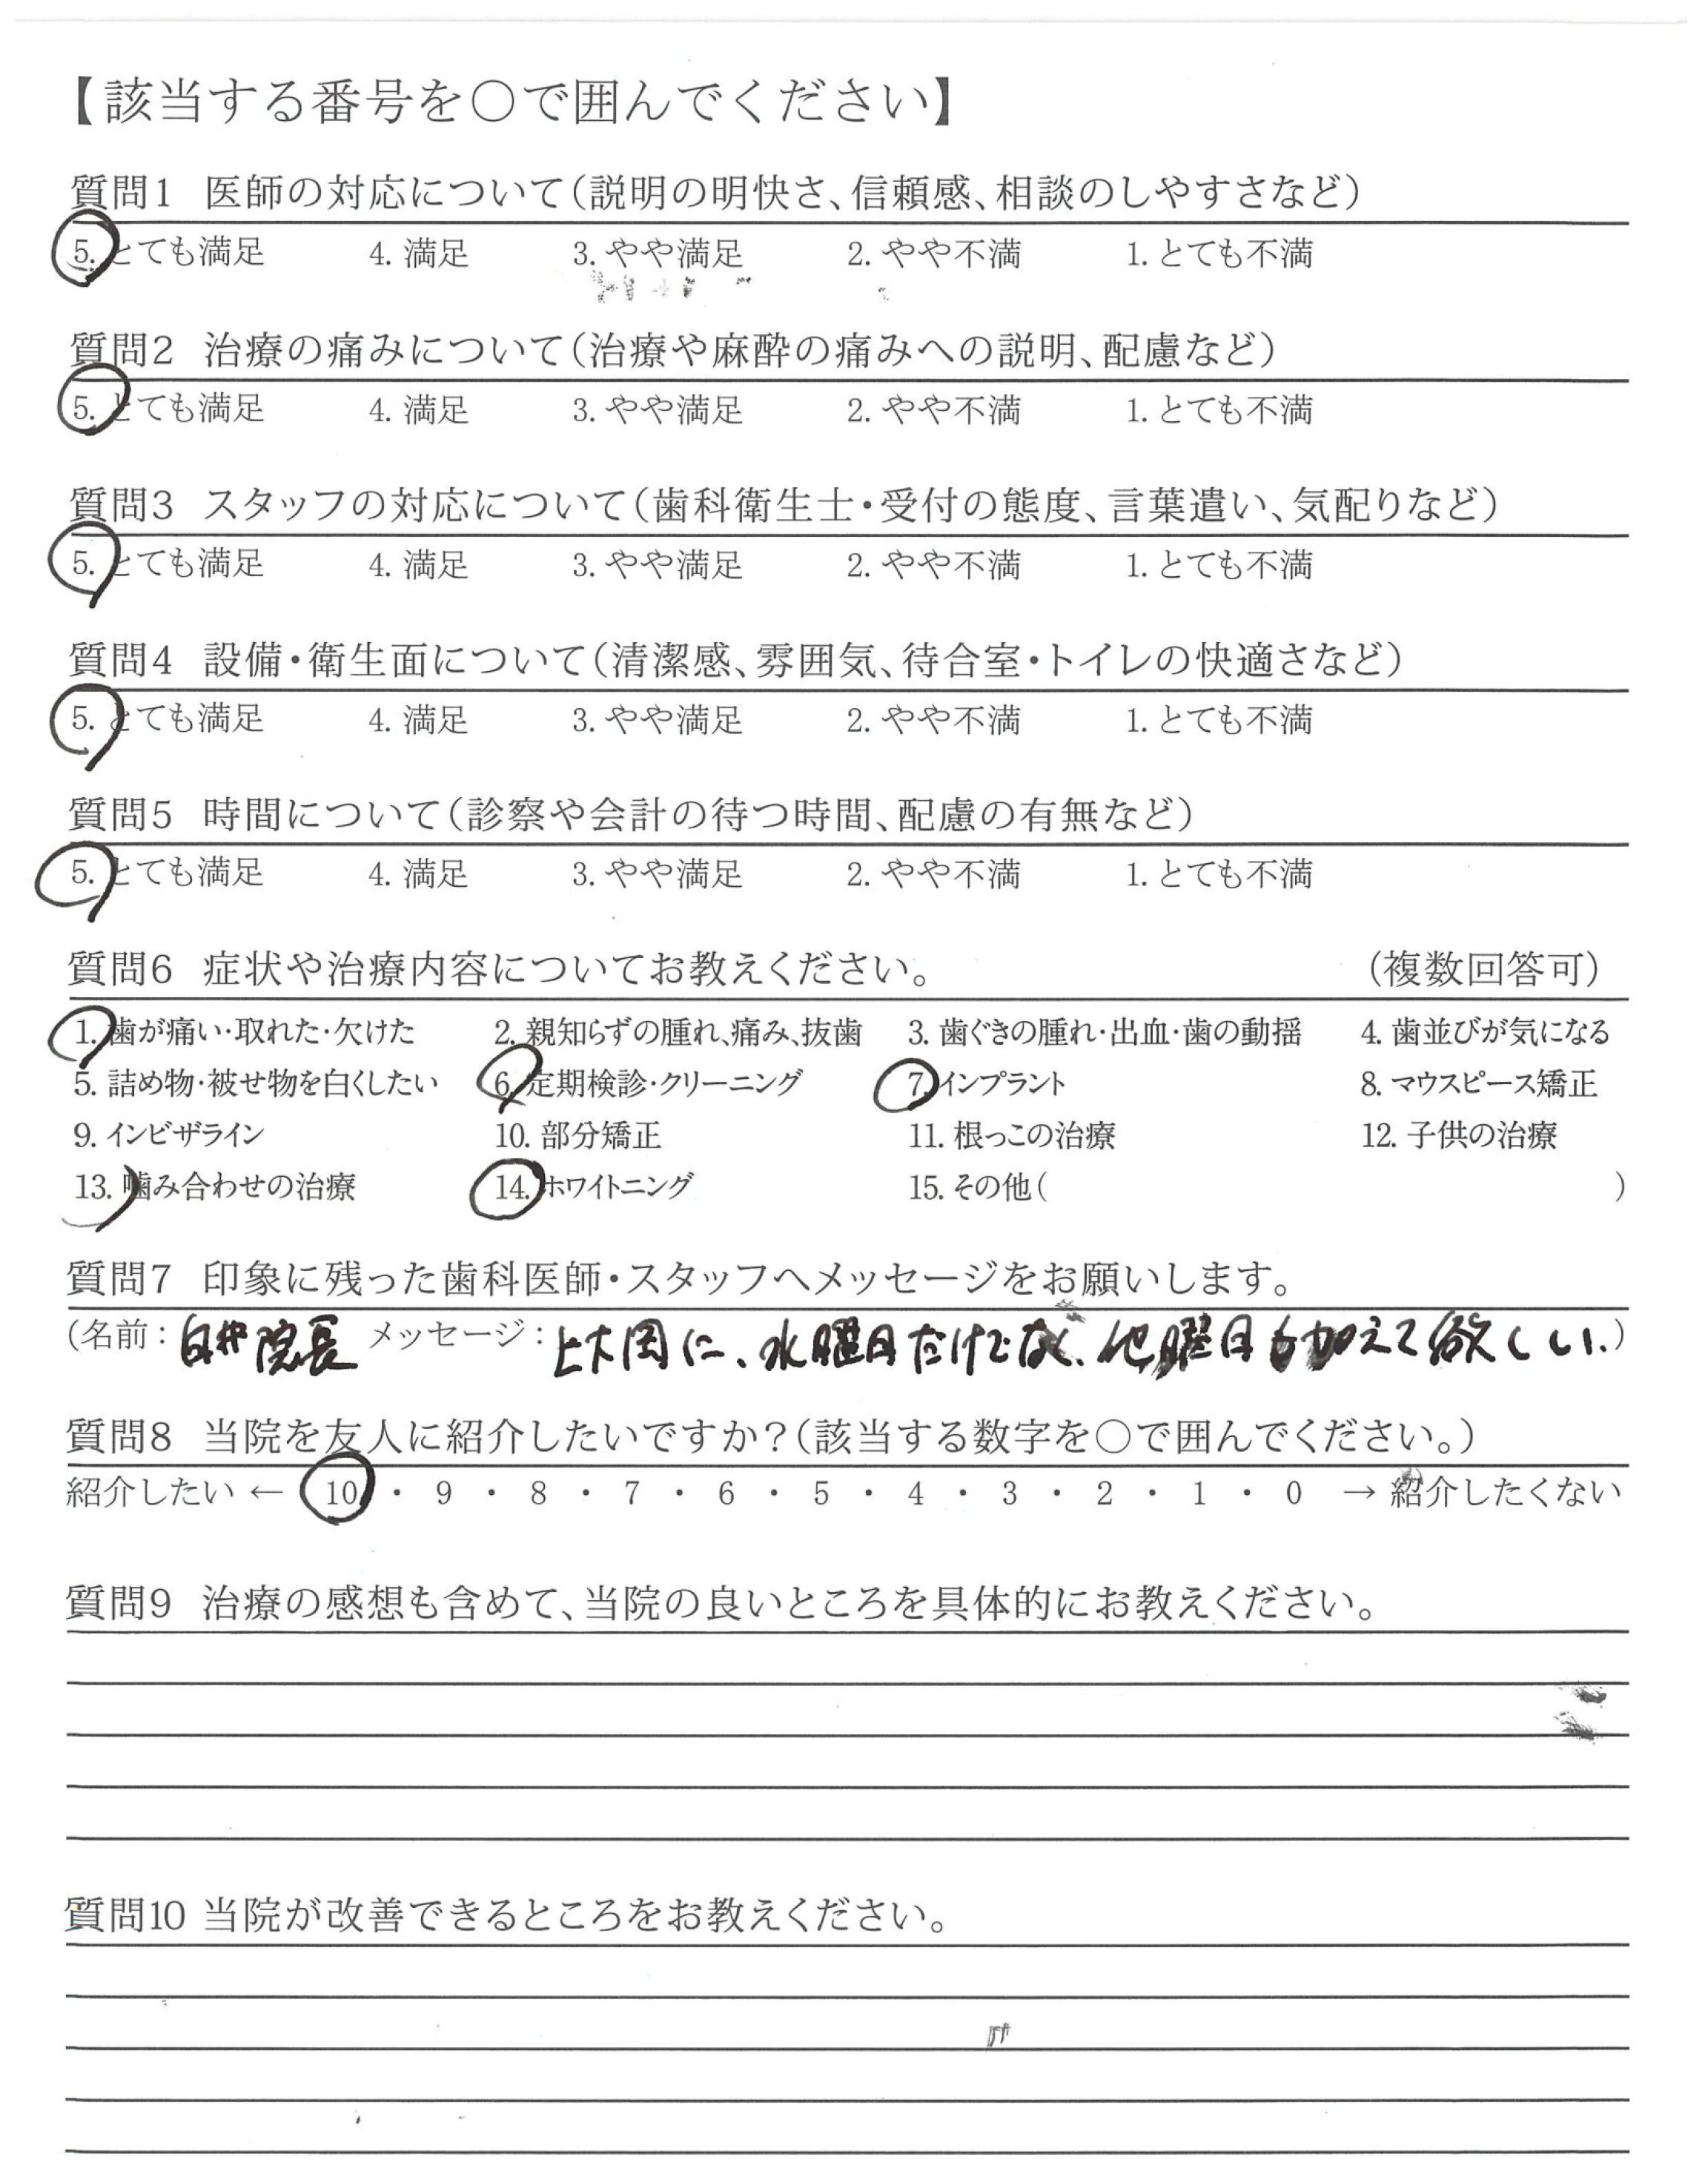 【該当する番号を○で囲んでください】
質問1 医師の対応について(説明の明快さ、信頼感、相談のしやすさなど)
5. とても満足 4. 満足 3. やや満足 2. やや不満 1. とても不満
質問2 治療の痛みについて(治療や麻酔の痛みへの説明、配慮など)
5. とても満足 4. 満足 3. やや満足 2. やや不満 1. とても不満
質問3 スタッフの対応について(歯科衛生士・受付の態度、言葉遣い、気配りなど)
5. とても満足 4. 満足 3. やや満足 2. やや不満 1. とても不満
質問4 設備・衛生面について(清潔感、雰囲気、待合室・トイレの快適さなど)
5. とても満足 4. 満足 3. やや満足 2. やや不満 1. とても不満
質問5 時間について(診察や会計の待つ時間、配慮の有無など)
5. とても満足 4. 満足 3. やや満足 2. やや不満 1. とても不満
質問6 症状や治療内容についてお教えください。 (複数回答可)
1. 歯が痛い・取れた・欠けた 2. 親知らずの腫れ、痛み、抜歯 3. 歯ぐきの腫れ・出血・歯の動揺 4. 歯並びが気になる
5. 詰め物・被せ物を白くしたい 6. 定期検診・クリーニング 7. インプラント 8. マウスピース矯正
9. インビザライン 10. 部分矯正 11. 根っこの治療 12. 子供の治療
13. 噛み合わせの治療 14. ホワイトニング 15. その他( )
質問7 印象に残った歯科医師・スタッフへメッセージをお願いします。
(名前: 白井院長 メッセージ: 上大岡に、水曜日だけでなく、他曜日も加えて欲しい。)
質問8 当院を友人に紹介したいですか?(該当する数字を○で囲んでください。)
紹介したい ← 10 ・ 9 ・ 8 ・ 7 ・ 6 ・ 5 ・ 4 ・ 3 ・ 2 ・ 1 ・ 0 → 紹介したくない
質問9 治療の感想も含めて、当院の良いところを具体的にお教えください。
質問10 当院が改善できるところをお教えください。